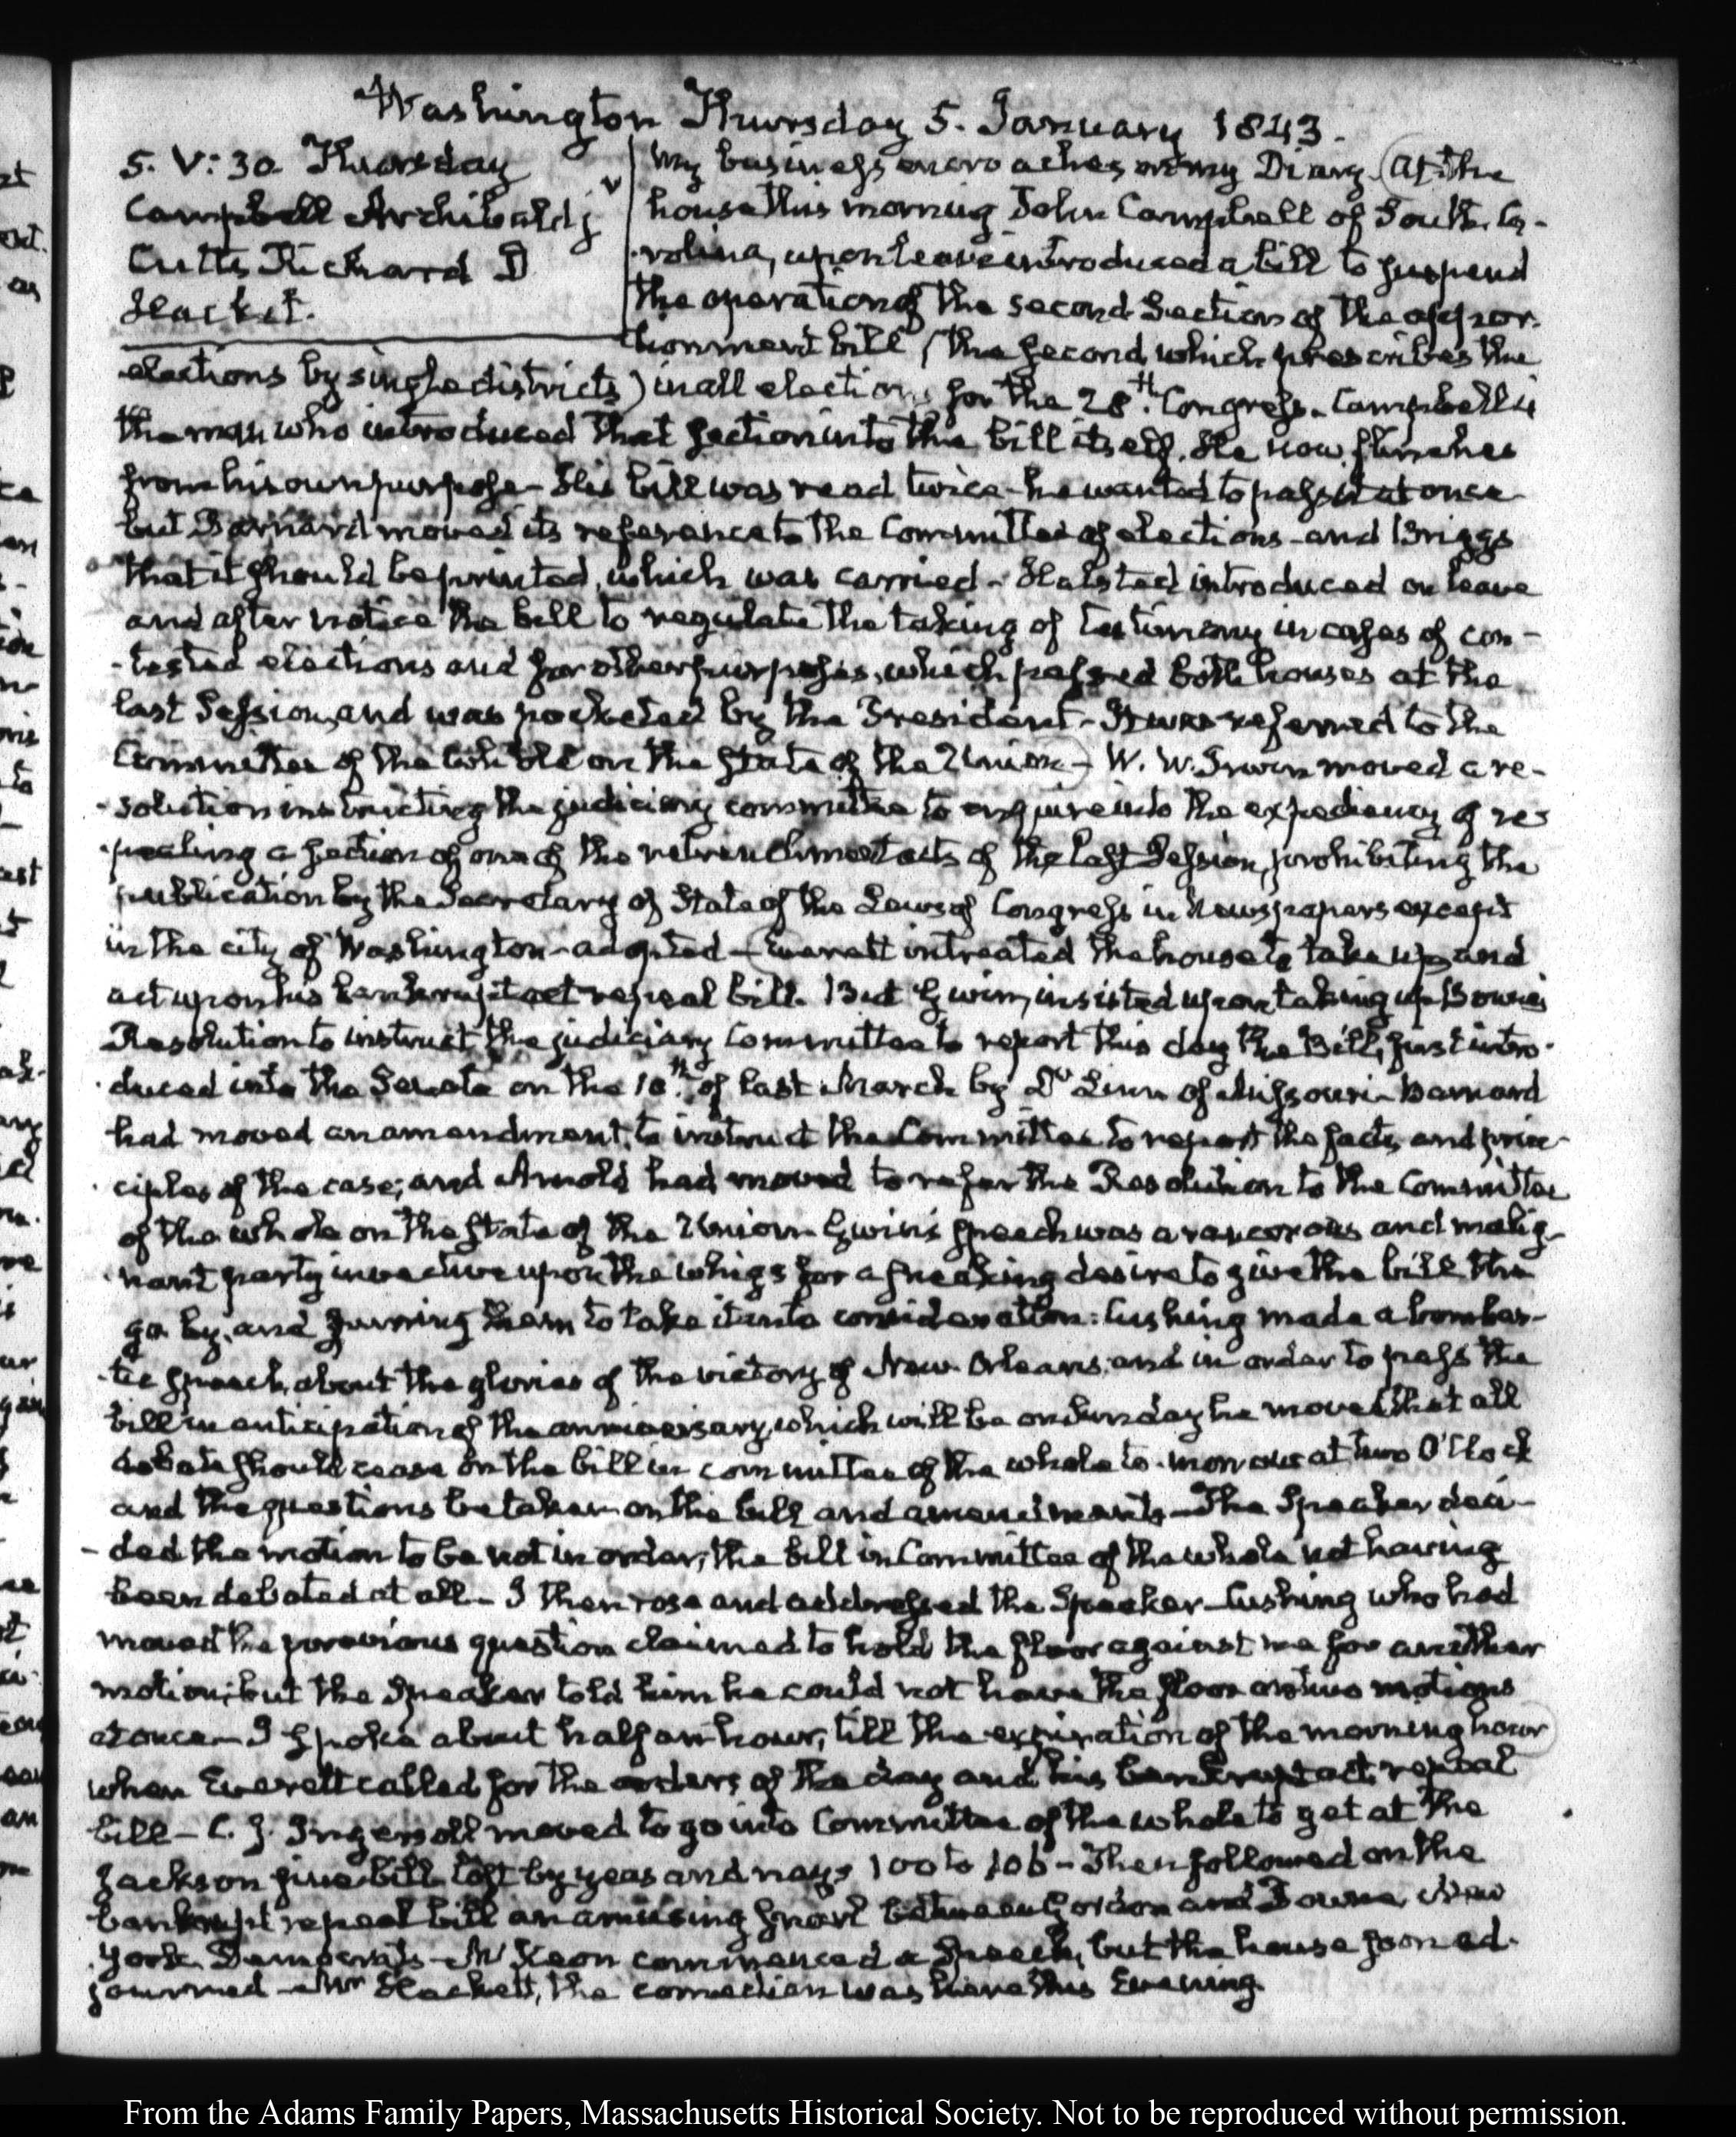 Washington Thursday 5. January 1843.
5. V:30. Thursday
Campbell Archibald j
Cutts Richard D
Hacket.
My business encroaches on my Diary. At the
house this morning John Campbell of South Ca-
-rolina, upon leave introduced a bill to suspend
the operation of the second Section of the appor-
tionment bill, (the second, which prescribes the
elections by single districts) in all elections for the 28th. Congress. Campbell is
the man who introduced that section into the bill itself. He now flinches
from his own purpose- His bill was read twice- he wanted to pass it at once
but Barnard moved its reference to the Committee of elections- and Briggs
that it should be printed, which was carried- Halsted introduced on leave
and after notice the bill to regulate the taking of testimony in cases of con-
-tested elections and for other purposes, which passed both houses at the
last Session, and was pocketed by the President- It was referred to the
Committee of the whole on the state of the Union- W. W. Irwin moved a re-
-solution instructing the judiciary committee to enquire into the expediency of re-
-pealing a section of one of the retrenchment acts of the last Session, prohibiting the
publication by the Secretary of State of the Laws of Congress in Newspapers except
in the city of Washington- adopted- Everett intreated the house to take up and
act upon his bankrupt act repeal bill. But Gwin, insisted upon taking up Bowne's
Resolution to instruct the judiciary Committee to report this day the Bill, first intro-
-duced into the Senate on the 10th. of last March by Dr Linn of Missouri- Barnard
had moved an amendment, to instruct the Committee to report the facts, and prin-
-ciples of the case; and Arnold had moved to refer the Resolution to the Committee
of the whole on the state of the Union- Gwin's speech was a rancorous and malig-
-nant party invective upon the whigs for a sneaking desire to give the bill the
go by, and them to take it into consideration: Cushing made a bombas-
-tic speech, about the glories of the victory of New-Orleans; and in order to pass the
bill in anticipation of the anniversary, which will be on Sunday he moved that all
debate should cease on the bill in committee of the whole to-morrow at two O'Clock
and the questions be taken on the bill and amendments- The Speaker deci-
-ded the motion to be not in order, the bill in Committee of the whole not having
been debated at all- I then rose and addressed the Speaker- Cushing who had
moved the previous question claimed to hold the floor against me for another
motion; but the Speaker told him he could not have the floor on two motions
at once- I spoke about half an hour, till the expiration of the morning hour
when Everett called for the orders of the day and his bankrupt act, repeal
bill- C. J. Ingersoll moved to go into Committee of the whole to get at the
Jackson fine bill. lost by yeas and nays 100 to 106- Then followed on the
bankrupt repeal bill an amusing between Gordon and Bowne, New
York Democrats- McKeon commenced a Speech, but the house soon ad-
journed- Mr Hackett, the comedian was here this Evening.
From the Adams Family Papers, Massachusetts Historical Society. Not to be reproduced without permission.